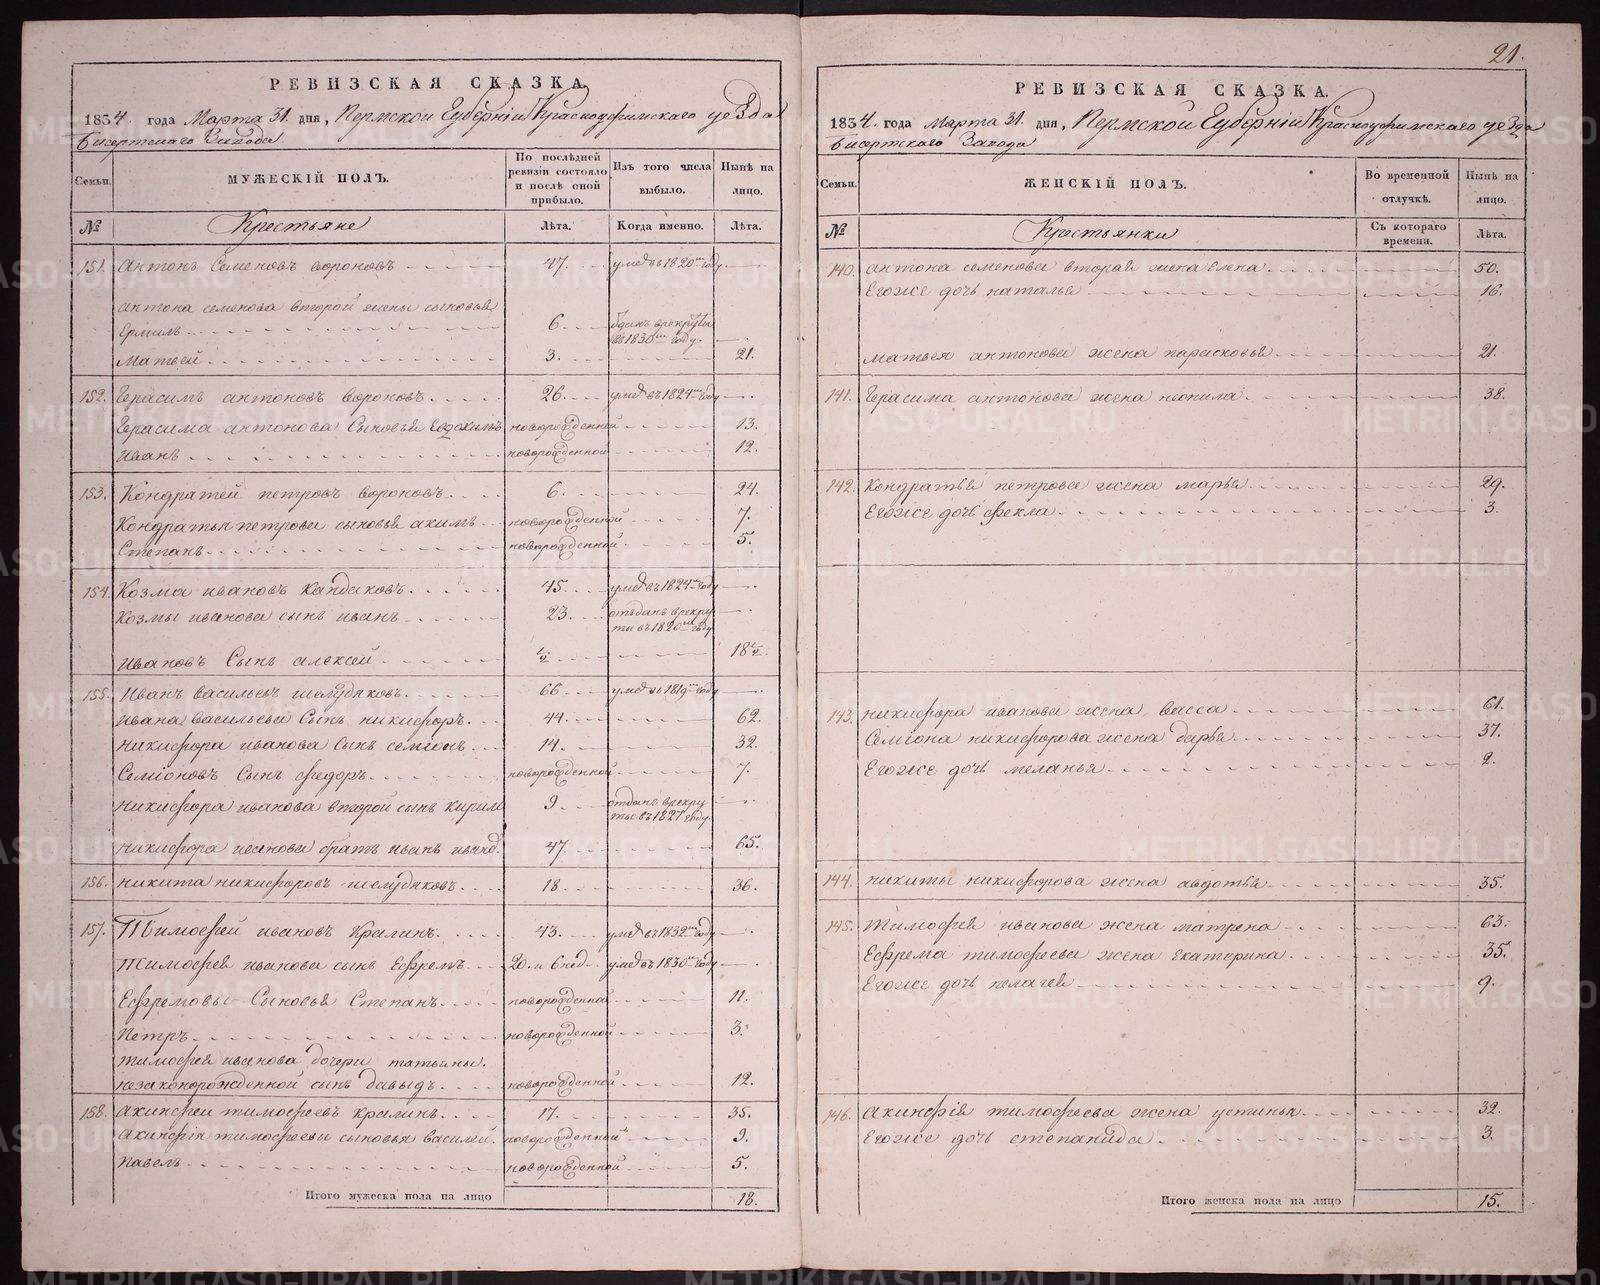 РЕВИЗСКАЯ СКАЗКА.
1834. года Марта 31. дня, Пермской Губерніи Красноуфимскаго уезда
Бисертскаго Завода
Семьи. МУЖЕСКІЙ ПОЛЪ. По послѣдней ревизіи состояло и послѣ оной прибыло. Изъ того числа выбыло. Нынѣ на лицо.
№ Крестьяне Лѣта. Когда именно. Лѣта.
151. Антонъ Семеновъ Вороновъ 47. умер въ 1820м году
Антона Семенова второй жены сыновья
Ермилъ 6. отданъ в рекруты въ 1830м году.
Матвей 3. 21.
152. Герасимъ Антоновъ Вороновъ 26. умер въ 1824м году
Герасима Антонова Сыновья Евдокимъ новорожденной 13.
Иванъ новорожденной 12.
153. Кондратей Петровъ Вороновъ 6. 24.
Кондратья Петрова сыновья Акимъ новорожденной 7.
Степанъ новорожденной 5.
154. Козма Ивановъ Кандаковъ 45. умер въ 1824м году
Козмы Иванова сынъ Иванъ 23. отъданъ в рекруты въ 1820м году
Ивановъ Сынъ Алексей ½ 18½.
155. Иванъ Васильевъ Шелудяковъ 66. умер въ 1819м году
Ивана Васильева Сынъ Никифоръ 44. 62.
Никифора Иванова Сынъ Семіонъ 14. 32.
Семіоновъ Сынъ Федоръ новорожденной 7.
Никифора Иванова второй сынъ Кирилъ 9. отданъ в рекруты въ 1827 году
Никифора Иванова братъ Иванъ Иванов. 47. 65.
156. Никита Никифоровъ Шелудяковъ 18. 36.
157. Тимофей Ивановъ Кралинъ 43. умер въ 1832м году
Тимофея Иванова сынъ Ефремъ 20. и 6 нед. умер въ 1830м году
Ефремовы Сыновья Степанъ новорожденной 11.
Петръ новорожденной 3.
Тимофея Иванова дочери Татьяны.
незаконорожденной сынъ Давыдъ новорожденной 12.
158. Акинфеи Тимофеевъ Кралинъ 17. 35.
Акинфія Тимофеева сыновья Василей. новорожденной 9.
Павелъ новорожденной 5.
Итого мужеска пола на лицо 18.
21.
РЕВИЗСКАЯ СКАЗКА.
1834. года Марта 31. дня, Пермской Губерніи Красноуфимскаго уезда
Бисертскаго Завода
Семьи. ЖЕНСКІЙ ПОЛЪ. Во временной отлучкѣ. Нынѣ на лицо.
№ Крестьянки Съ котораго времени. Лѣта.
140. Антона Семенова вторая жена Елена 50.
Егоже дочь Наталья 16.
Матвея Антонова жена Парасковья 21.
141. Герасима Антонова жена Неонила 38.
142. Кондратья Петрова жена Марья 29.
Егоже дочь Фекла 3.
143. Никифора Иванова жена Васса 61.
Семіона Никифорова жена Дарья 37.
Егоже дочь Меланья 2.
144. Никиты Никифорова жена Авдотья 35.
145. Тимофея Иванова жена Матрена 63.
Ефрема Тимофеева жена Екатерина 35.
Егоже дочь Пелагея 9.
146. Акинфія Тимофеева жена Устинья 32.
Егоже дочь Степанида 3.
Итого женска пола на лицо 15.
METRIKI.GASO-URAL.RU